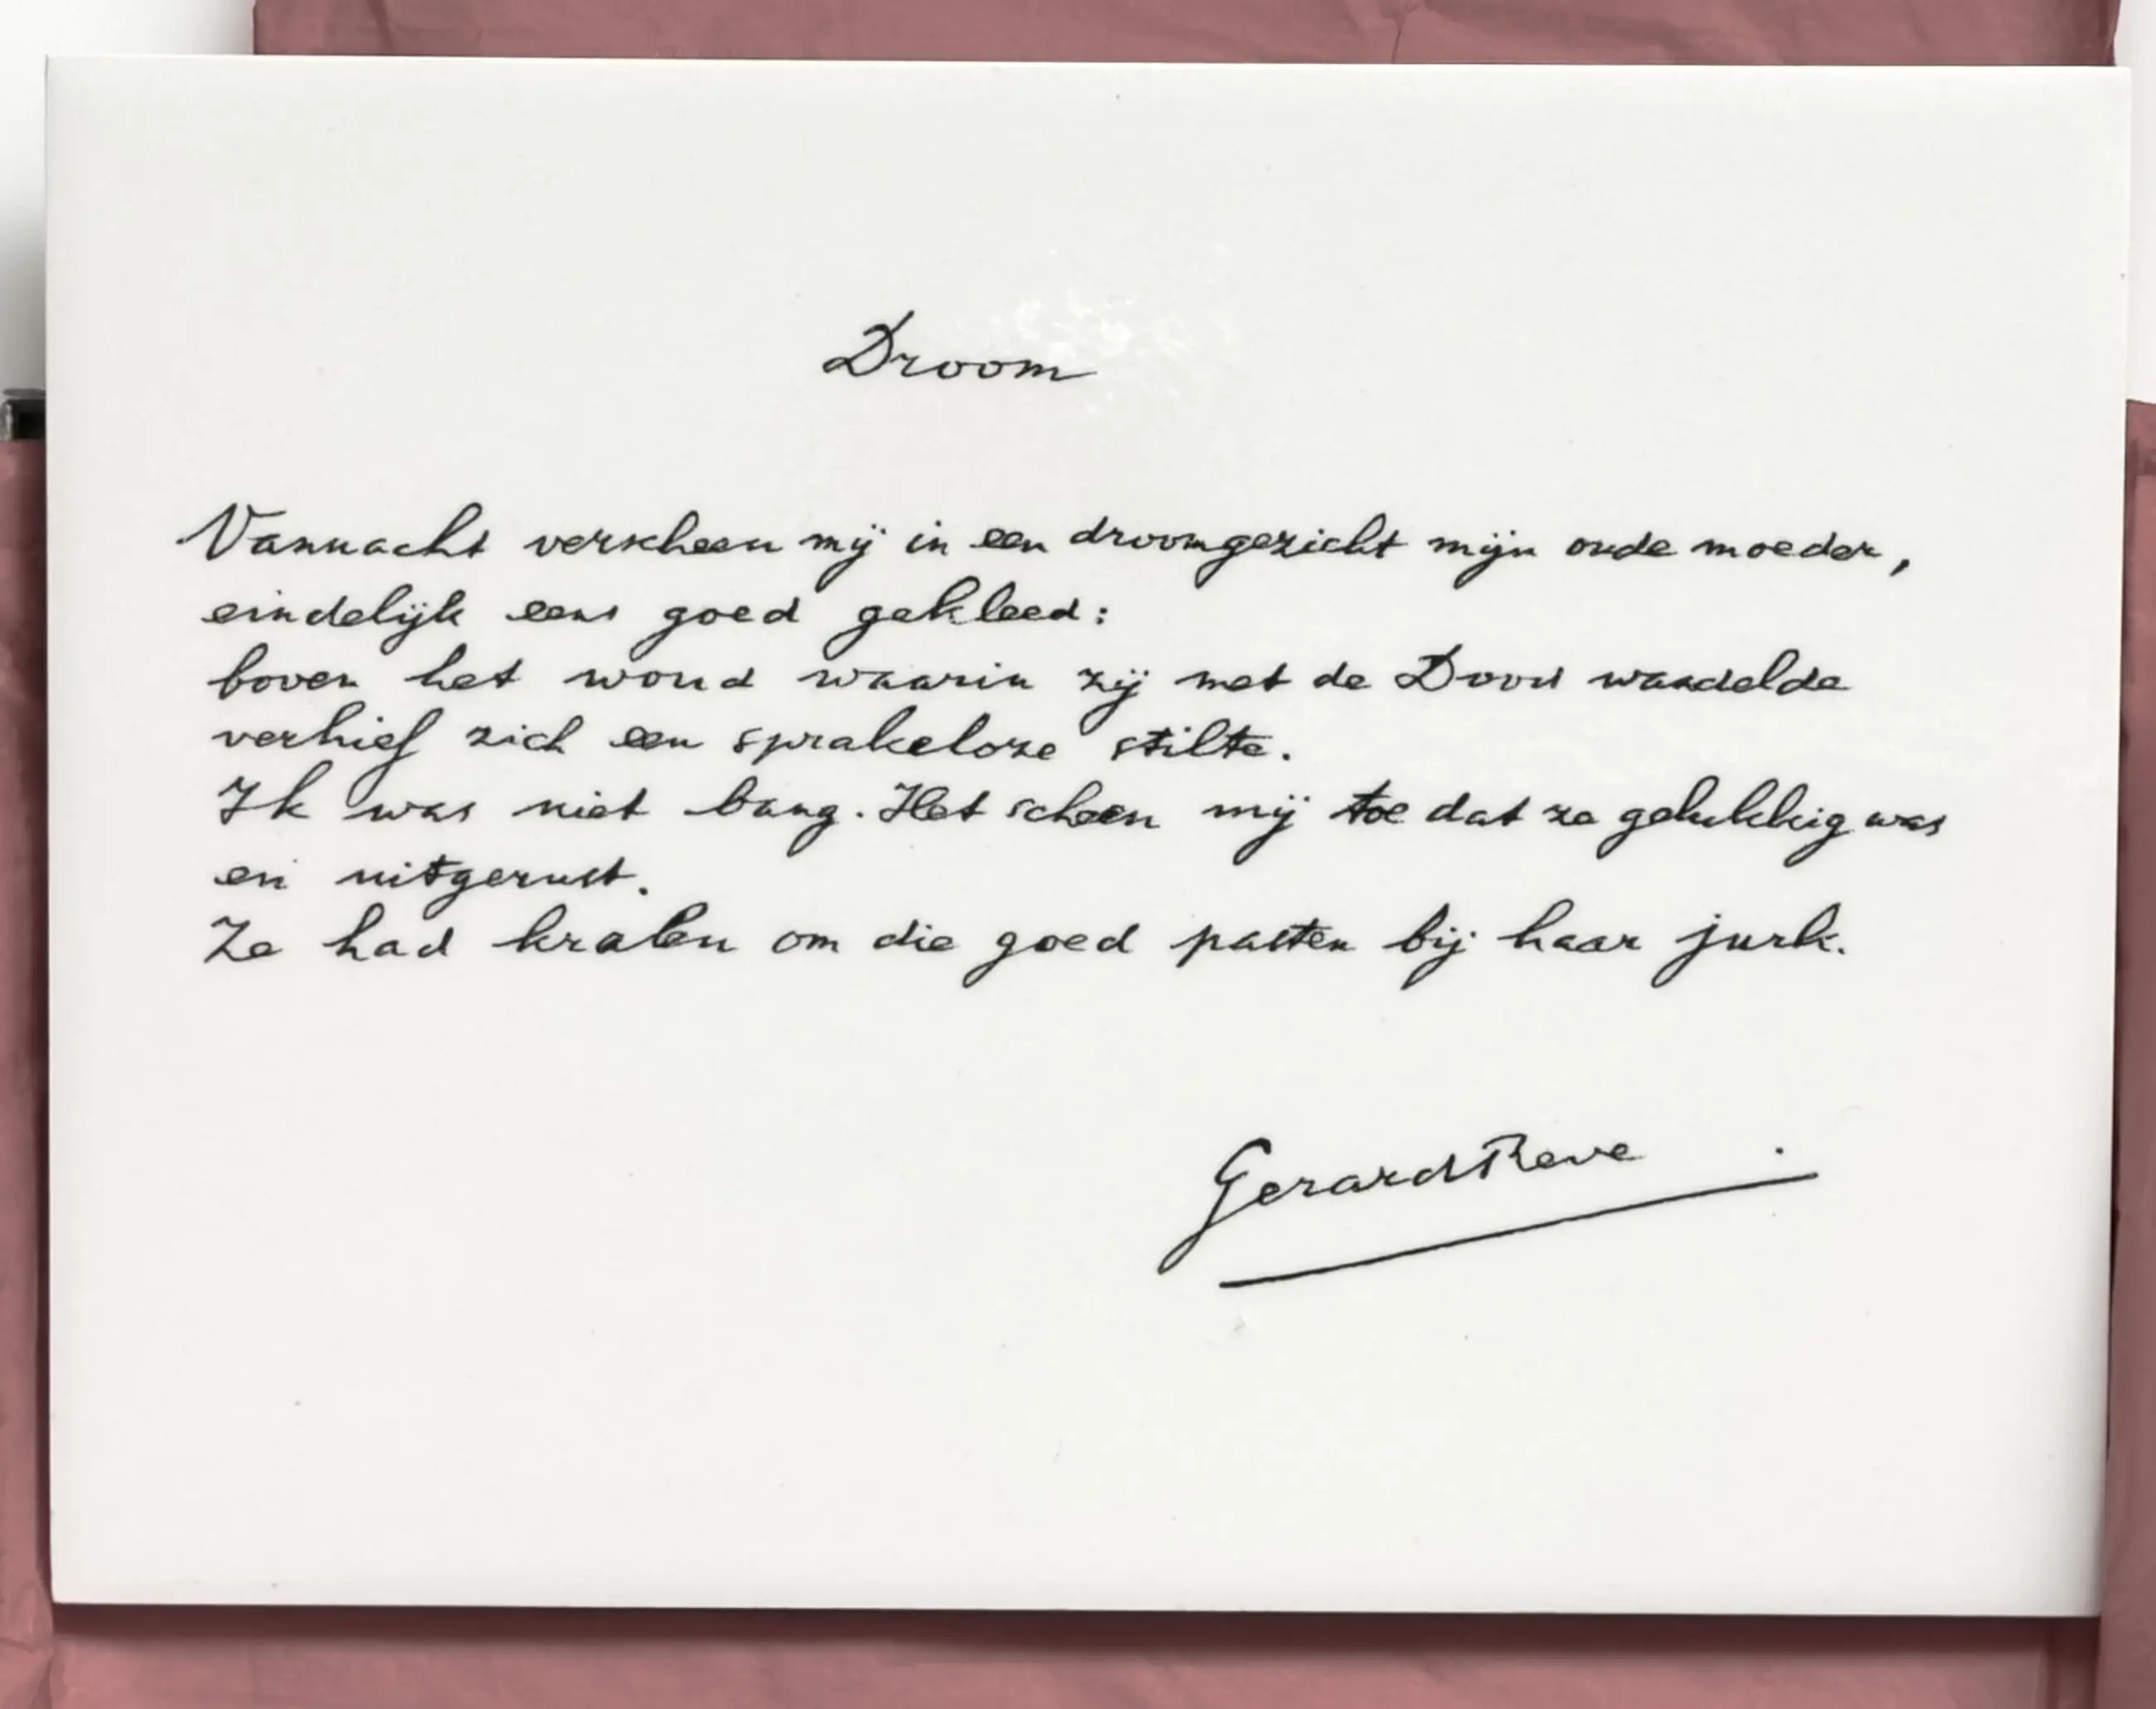 Droom
Vannacht verscheen mij in een droomgezicht mijn oude moeder,
eindelijk eens goed gekleed:
boven het woud waarin zij met de Dood wandelde
verhief zich een sprakeloze stilte.
Ik was niet bang. Het scheen mij toe dat ze gelukkig was
en uitgerust.
Ze had kralen om die goed pasten bij haar jurk.
Gerard Reve